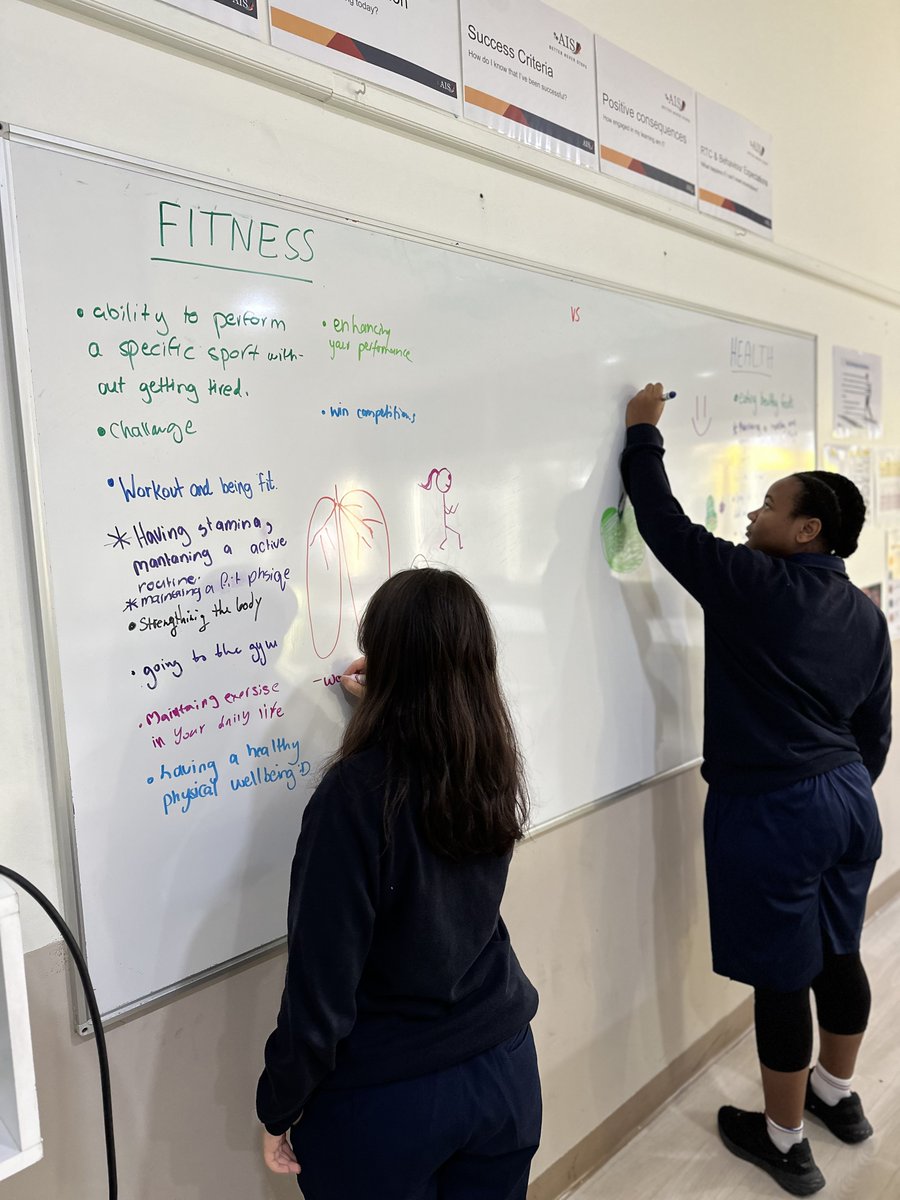 ng today?
AIS
Success Criteria
How do I know that I've been successful?
AIS
BETTER NEVER STOPS
AIS
Positive consequences
How engaged in my learning am I?
AIS
RTC & Behaviour Expectations
AIS
FITNESS
• ability to perform
a specific sport with-
out getting tired.
• challange
• Workout and being fit.
* Having stamina,
mantaning a active
routine.
* maintaining a fit phsiqe
• Strengthinig the body
• going to the gym
• Maintaing exersise
in your daily life
• having a healthy
physical wellbeing :D
• enhancing
your performance
• win competitions
- wo
VS
HEALTH
• eating healthy foods